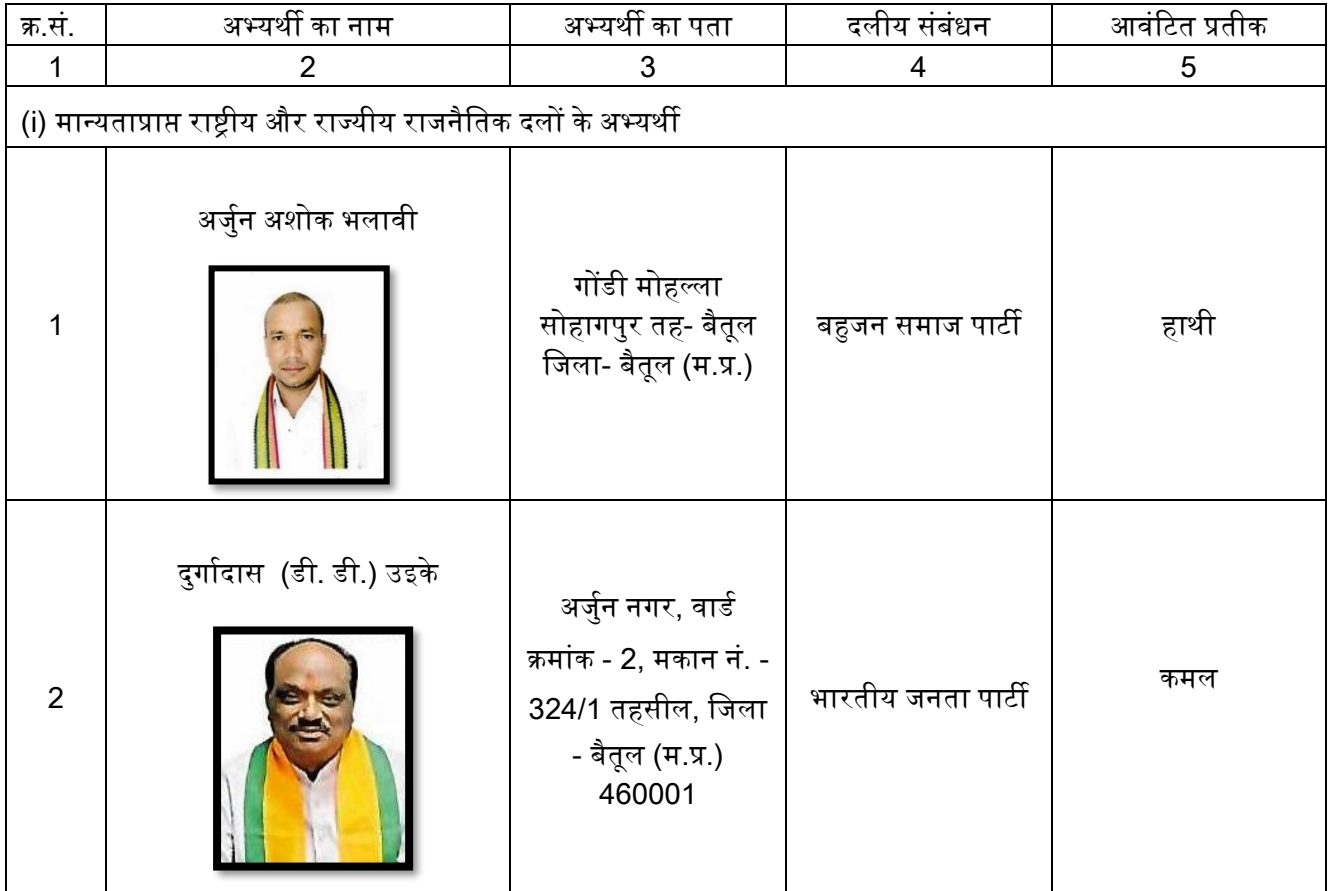 क्र.सं. अभ्यर्थी का नाम अभ्यर्थी का पता दलीय संबंधन आवंटित प्रतीक
1 2 3 4 5
(i) मान्यताप्राप्त राष्ट्रीय और राज्यीय राजनैतिक दलों के अभ्यर्थी
1
अर्जुन अशोक भलावी
गोंडी मोहल्ला
सोहागपुर तह- बैतूल
जिला- बैतूल (म.प्र.)
बहुजन समाज पार्टी
हाथी
2
दुर्गादास (डी. डी.) उइके
अर्जुन नगर, वार्ड
क्रमांक - 2, मकान नं. -
324/1 तहसील, जिला
- बैतूल (म.प्र.)
460001
भारतीय जनता पार्टी
कमल